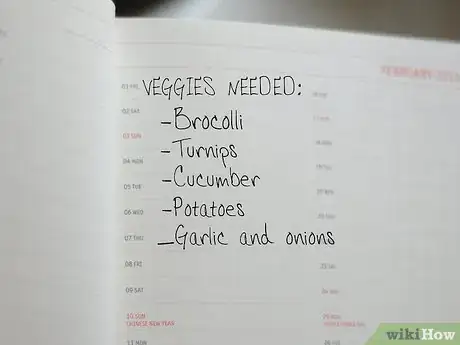 FEBRUARY
01 FRI
VEGGIES NEEDED:
02 SAT
-Brocolli
03 SUN
-Turnips
04 MON
-Cucumber
05 TUE
-Potatoes
06 WED
-Garlic and onions
07 THU
08 FRI
09 SAT
10 SUN
CHINESE NEW YEAR
11 MON
wikiHow